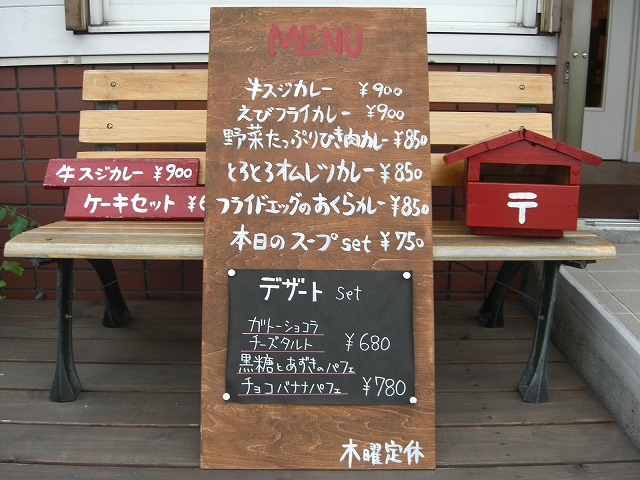 MENU
牛スジカレー ¥900
えびフライカレー ¥900
野菜たっぷりひき肉カレー ¥850
とろとろオムレツカレー ¥850
フライドエッグのおくらカレー ¥850
本日のスープset ¥750
デザート set
ガトーショコラ
チーズタルト ¥680
黒糖とあずきのパフェ
チョコバナナパフェ ¥780
木曜定休
牛スジカレー ¥900
ケーキセット
〒